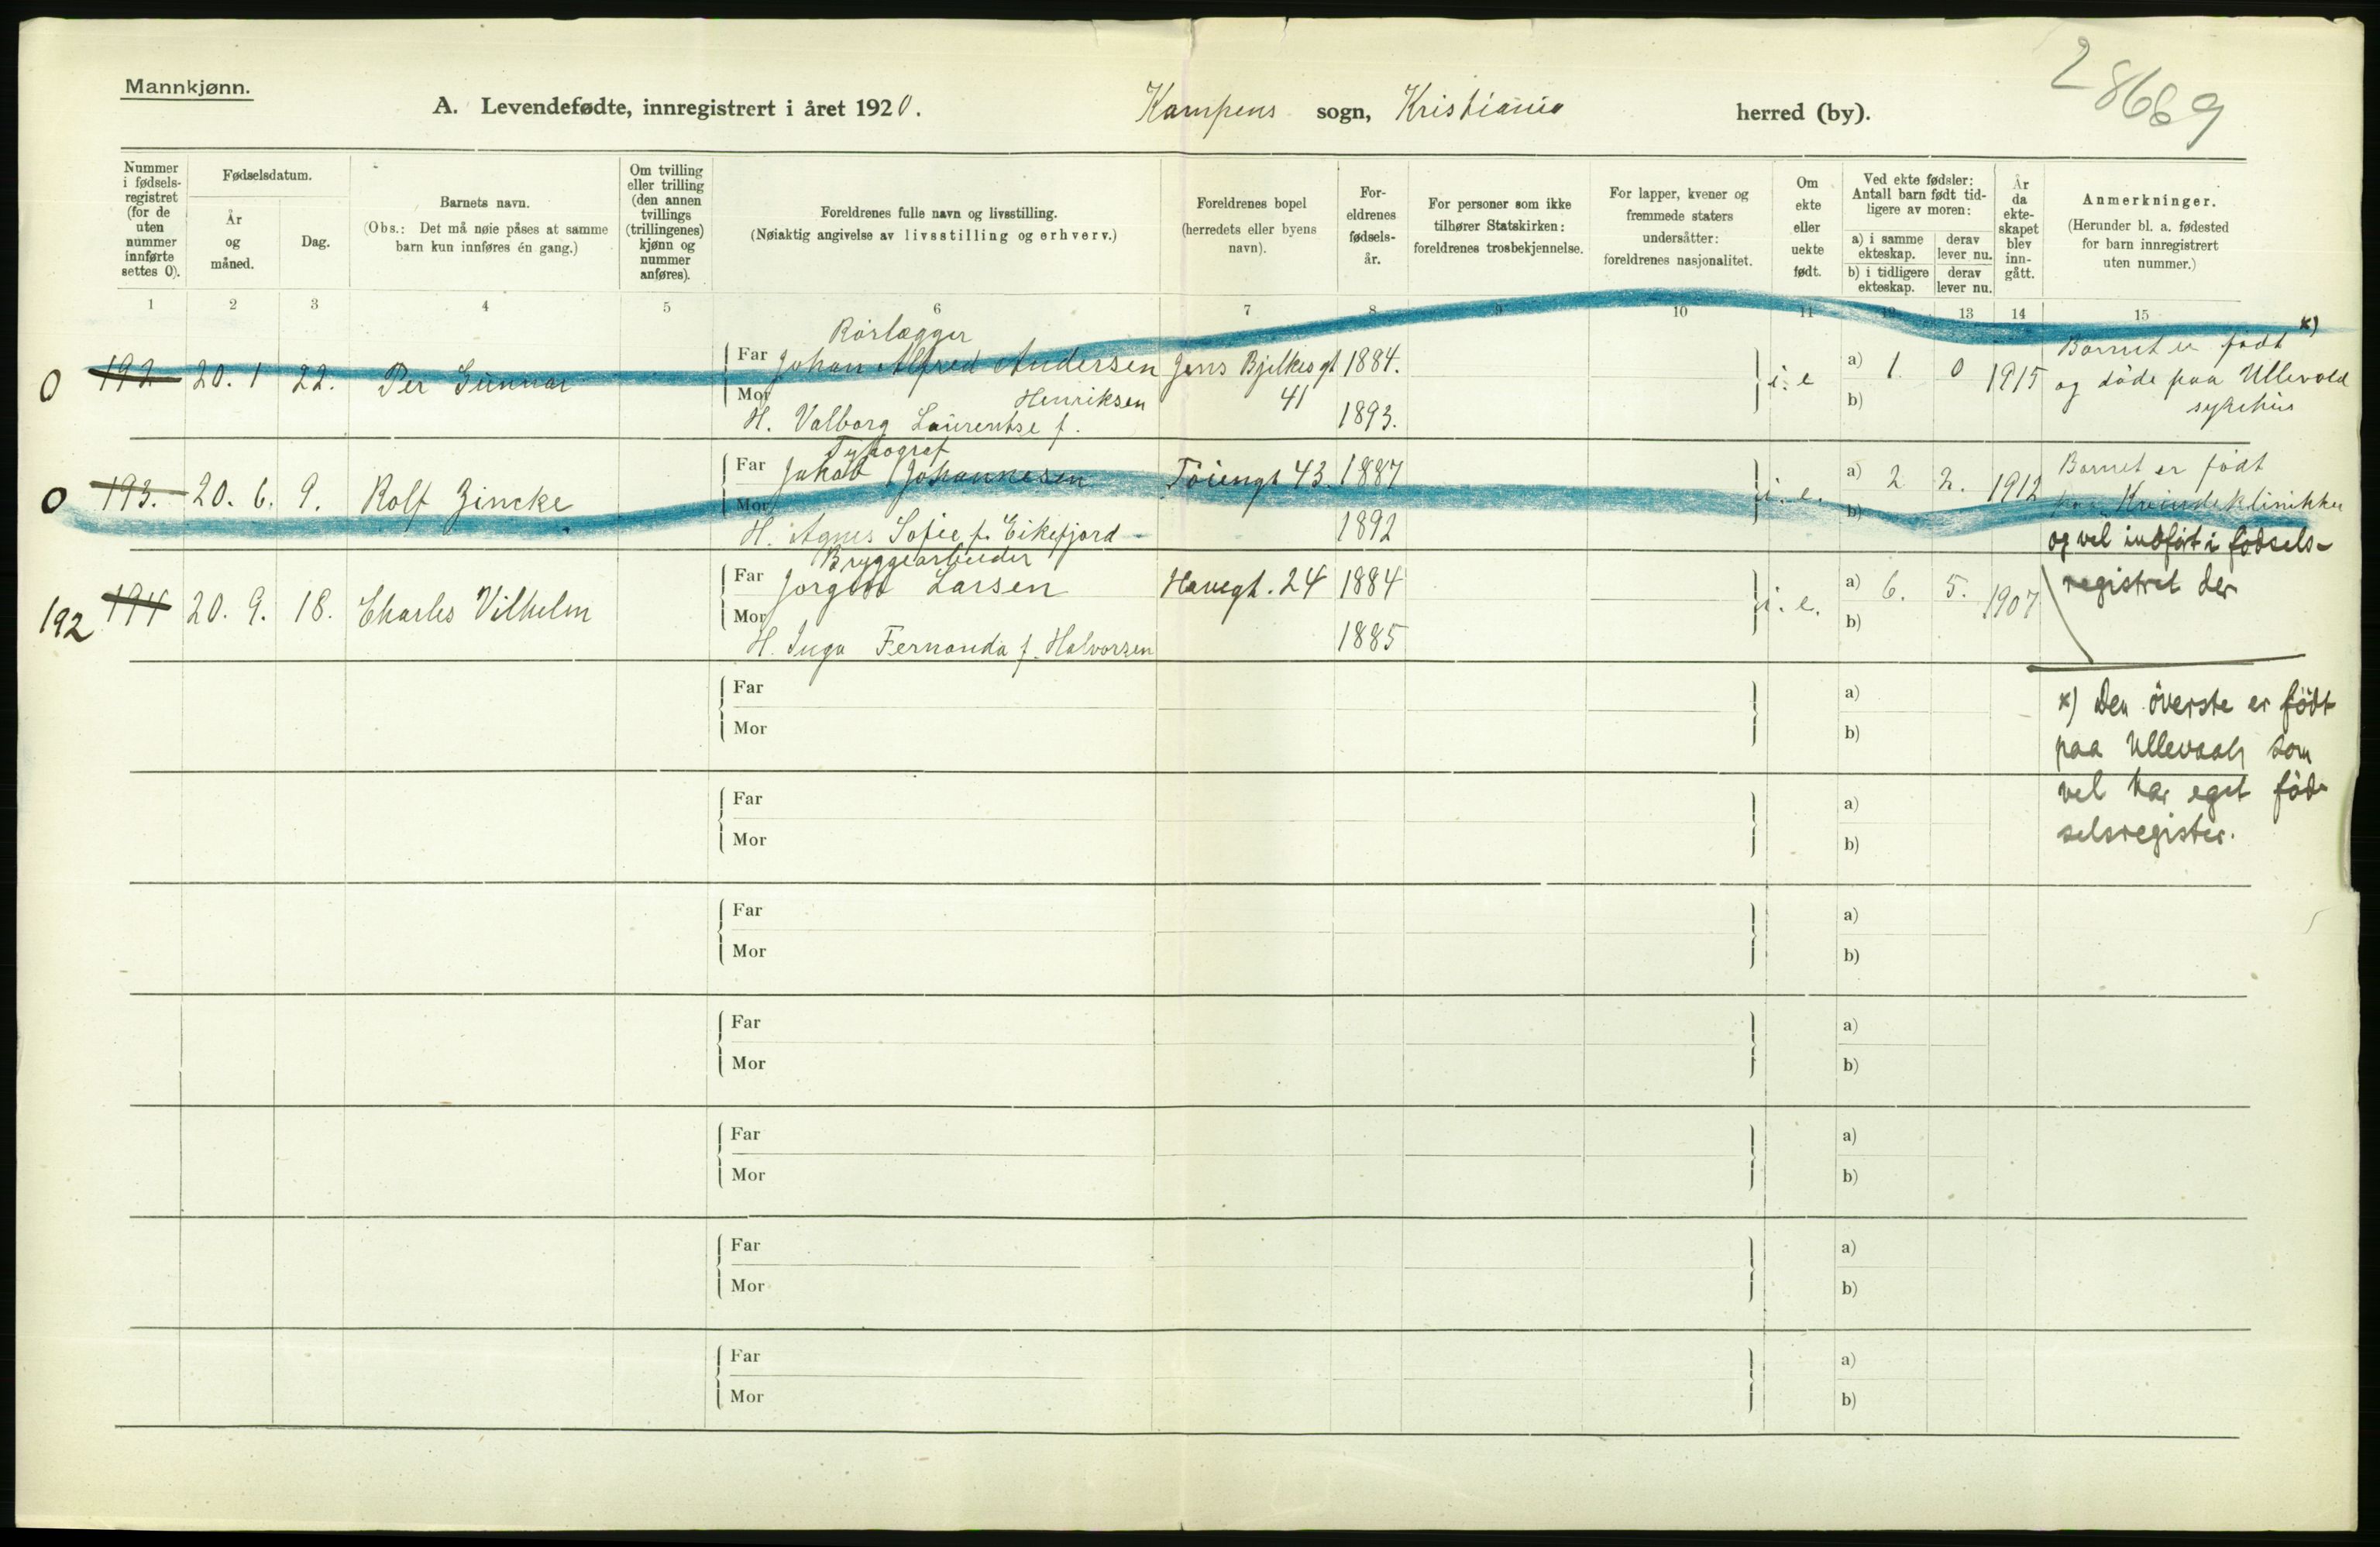 28669
Mannkjønn.
A. Levendefødte, innregistrert i året 1920. Kampens sogn, Kristiania herred (by).
Nummer i fødsels- registret (for de uten nummer innførte settes 0).
Fødselsdatum.
År og måned.
Dag.
Barnets navn.
(Obs.: Det må nøie påses at samme barn kun innføres én gang.)
Om tvilling eller trilling (den annen tvillings (trillingenes) kjønn og nummer anføres).
Foreldrenes fulle navn og livsstilling.
(Nøiaktig angivelse av livsstilling og erhverv.)
Foreldrenes bopel
(herredets eller byens navn).
For- eldrenes fødsels- år.
For personer som ikke tilhører Statskirken: foreldrenes trosbekjennelse.
For lapper, kvener og fremmede staters undersåtter: foreldrenes nasjonalitet.
Om ekte eller uekte født.
Ved ekte fødsler: Antall barn født tid- ligere av moren:
a) i samme ekteskap. derav lever nu.
b) i tidligere ekteskap. derav lever nu.
År da ekte- skapet blev inn- gått.
Anmerkninger.
(Herunder bl. a. fødested for barn innregistrert uten nummer.)
1 2 3 4 5 6 7 8 9 10 11 12 13 14 15
Rørlægger
0 192 20. 1 22. Per Gunnar Far Johan Alfred Andersen Jens Bjelkesgt 1884. i. e a) 1. 0 1915 Barnet er født x)
Mor Henriksen 41 b) og døde paa Ullevold
H. Valborg Laurentse f. 1893. sykehus
Typograf
0 193. 20. 6. 9. Rolf Zincke Far Jakob Johannesen Töiengt 43. 1887 i. e. a) 2 2. 1912 Barnet er født
Mor b) Kvindeklinikken
H. Agnes Sofie f. Eikefjord 1892 og vel indført i fødsels-
Bryggearbeider
192 194 20. 9. 18. Charles Vilhelm Far Jørgen Larsen Havegt. 24 1884 i. e. a) 6. 5. 1907 registret der
Mor b)
H. Inga Fernanda f. Halvorsen 1885
x) Den øverste er født
paa Ullevaal, som
vel har eget fød-
selsregister.
Far a)
Mor b)
Far a)
Mor b)
Far a)
Mor b)
Far a)
Mor b)
Far a)
Mor b)
Far a)
Mor b)
Far a)
Mor b)